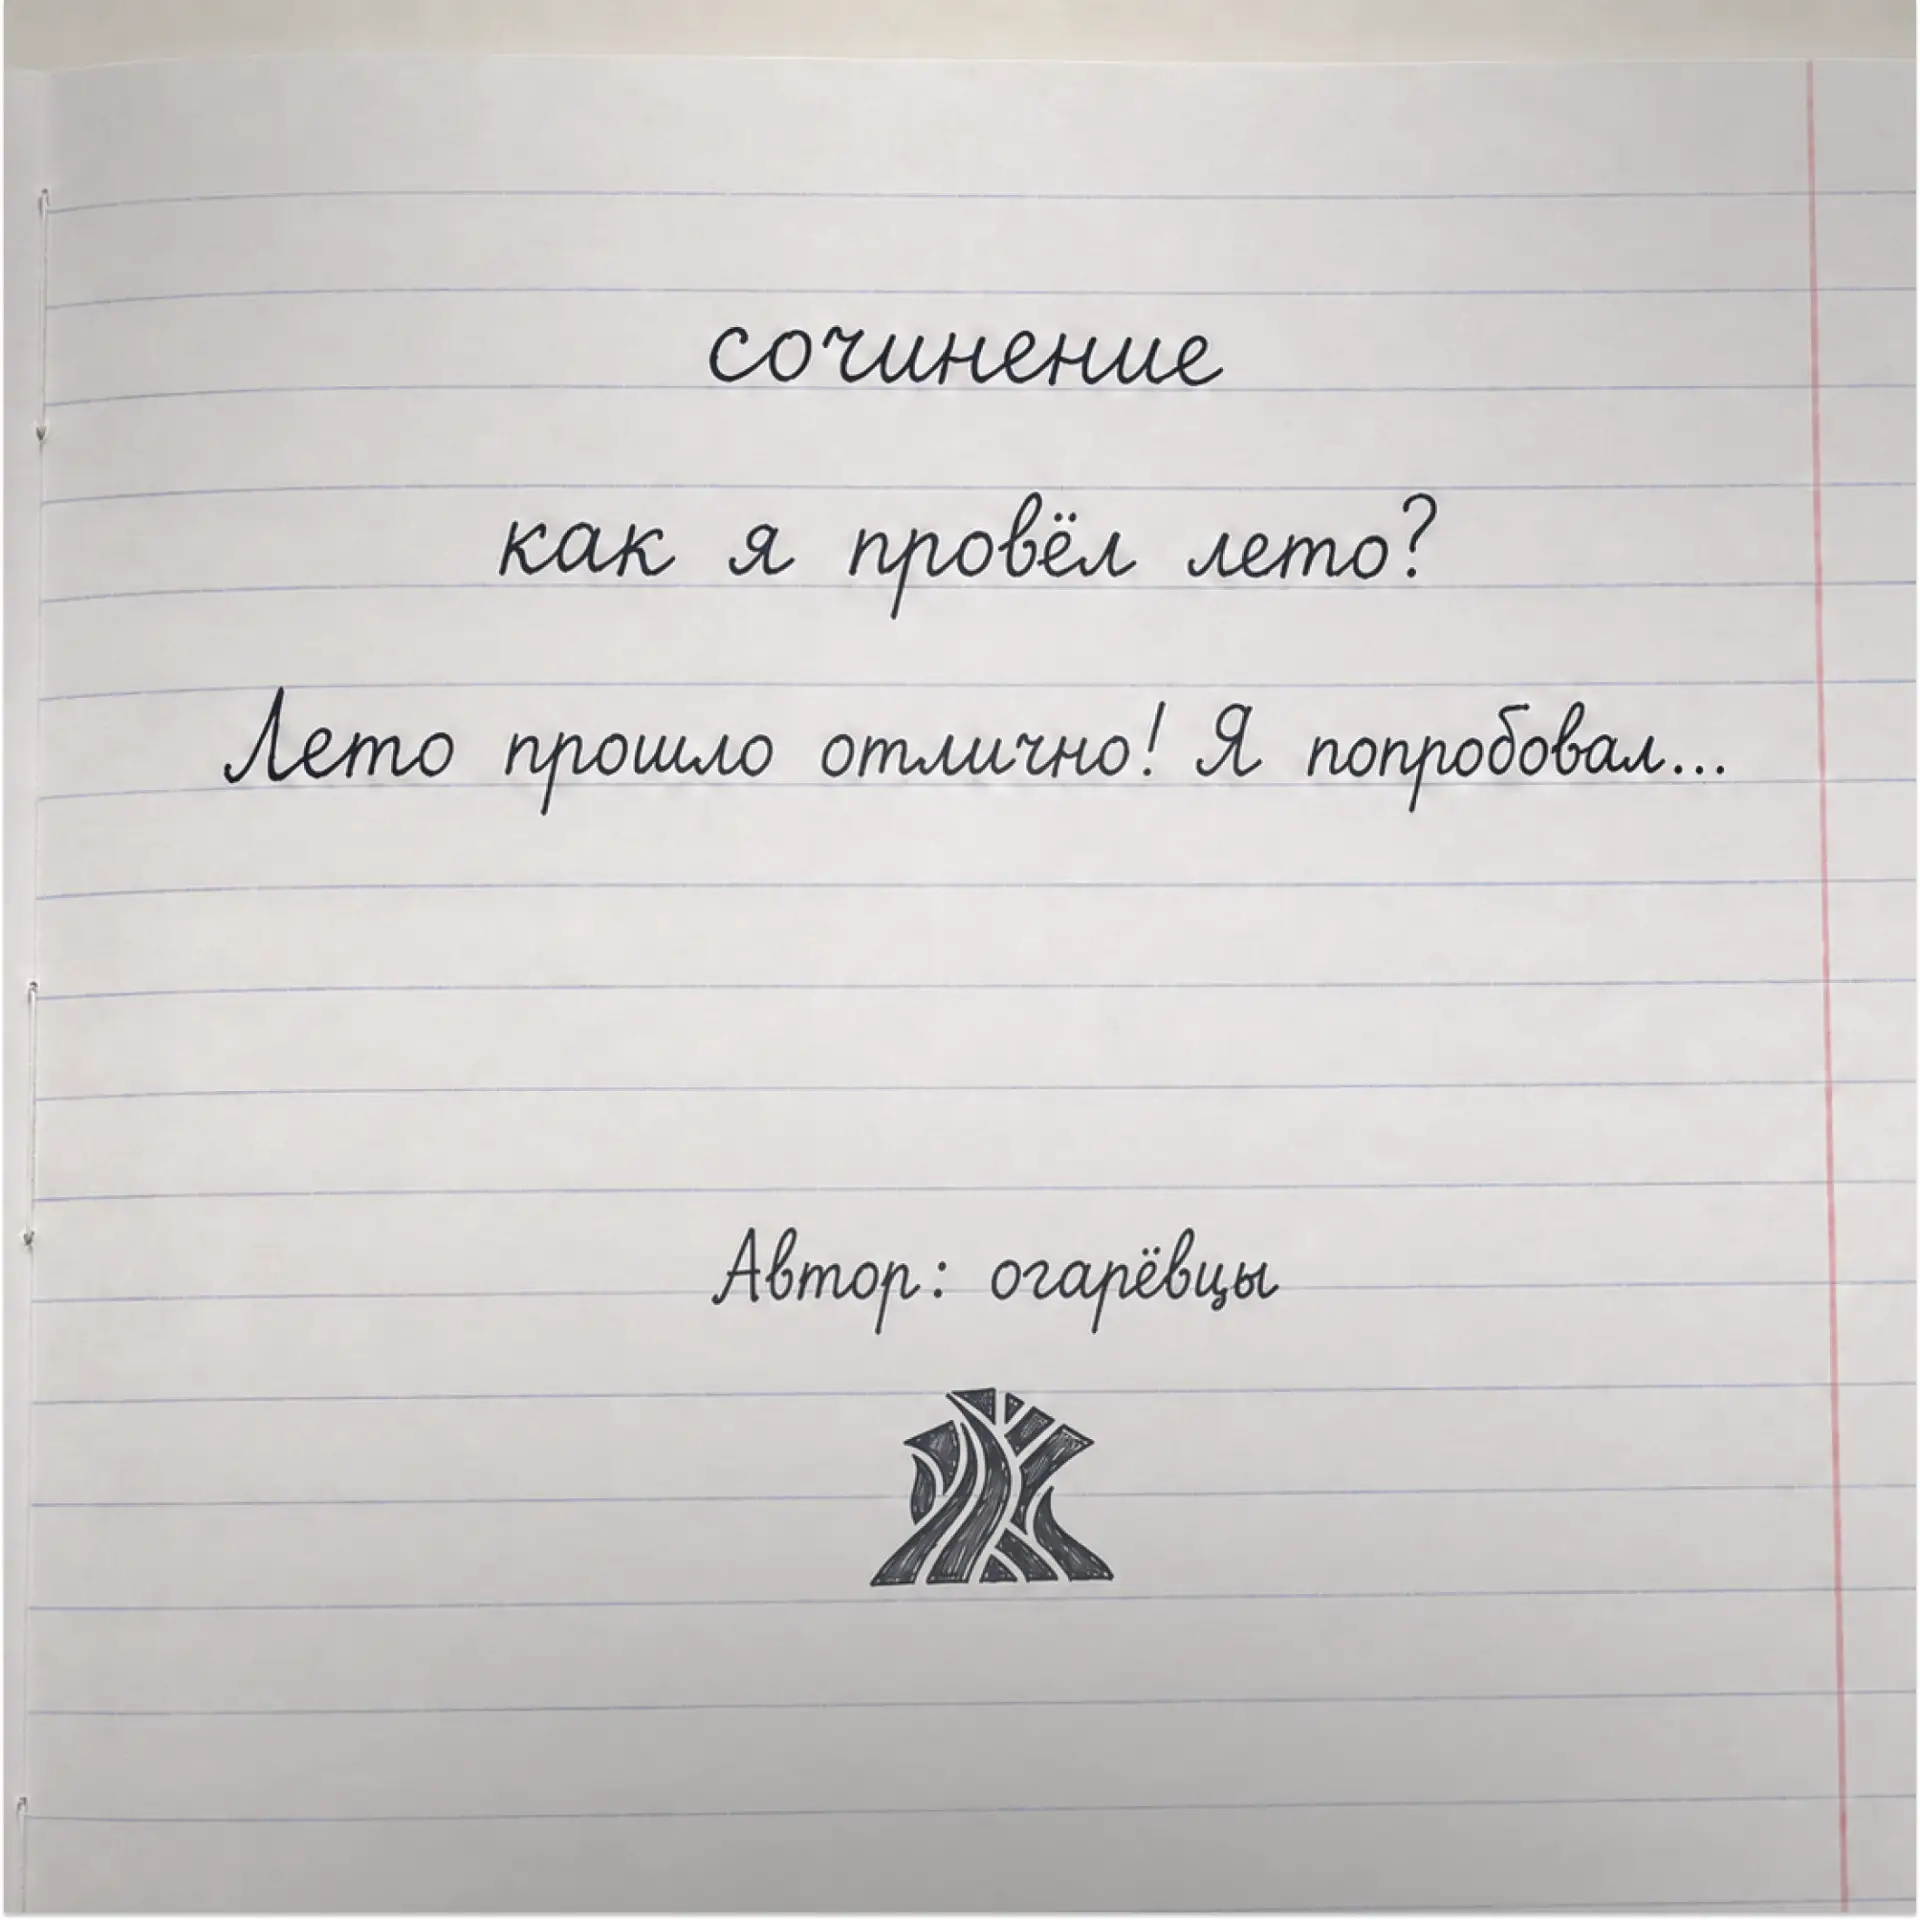 сочинение
как я провёл лето?
Лето прошло отлично! Я попробовал...
Автор: огарёвцы